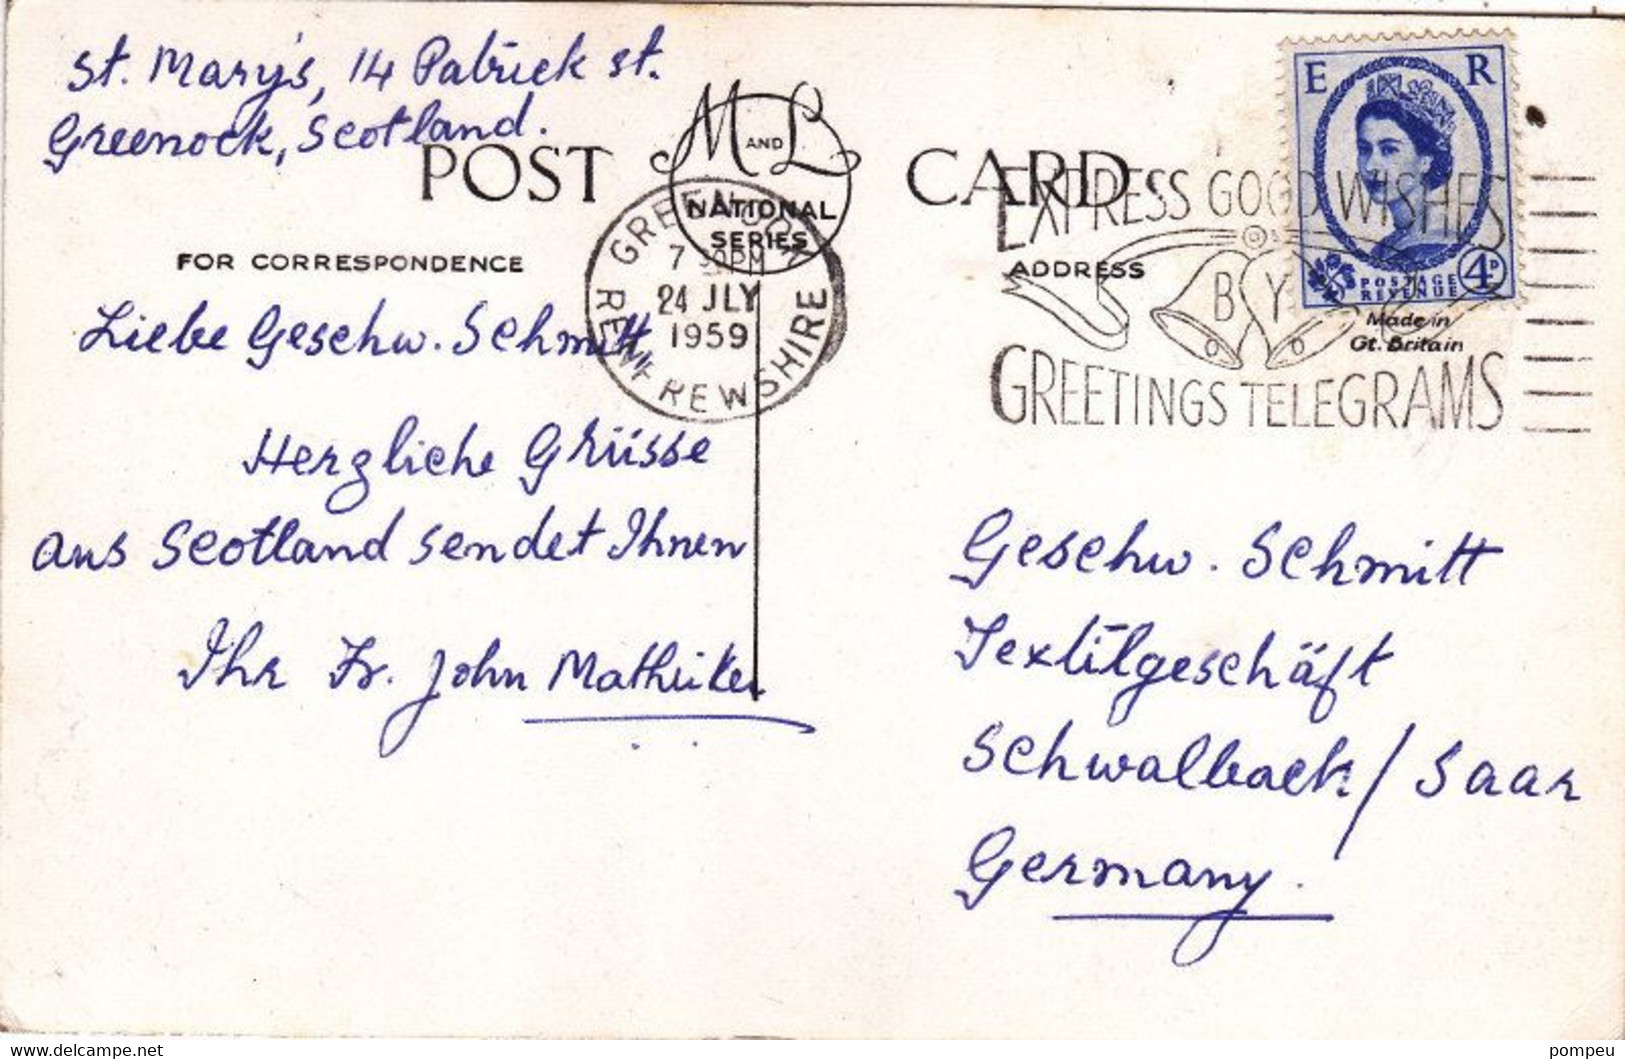 St. Mary's, 14 Patrick St.
Greenock, Scotland.
POST CARD
M AND L
NATIONAL
SERIES
GREENOCK
7 30PM
24 JLY
1959
RENFREWSHIRE
E R
POSTAGE
REVENUE
4D
EXPRESS GOOD WISHES
BY
GREETINGS TELEGRAMS
FOR CORRESPONDENCE
ADDRESS
Made in
Gt. Britain
Liebe Geschw. Schmitt
Herzliche Grüsse
aus Scotland sendet Ihnen
Ihr Fr. John
Geschw. Schmitt
Textilgeschäft
Schwalbach / Saar
Germany.
delcampe.net
pompeu